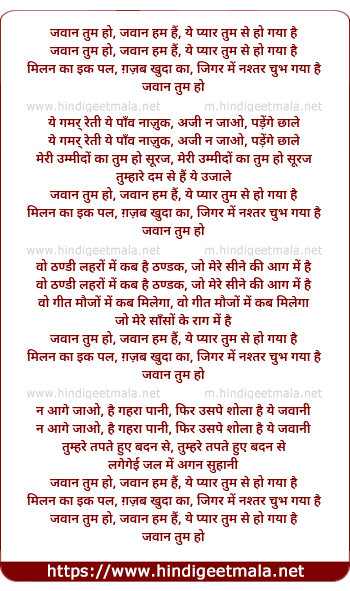 जवान तुम हो, जवान हम हैं, ये प्यार तुम से हो गया है
जवान तुम हो, जवान हम हैं, ये प्यार तुम से हो गया है
मिलन का इक पल, ग़ज़ब खुदा का, जिगर में नश्तर चुभ गया है
जवान तुम हो
www.hindigeetmala.net m.hindigeetmala.net
ये गमर् रेती ये पाँव नाज़ुक, अजी न जाओ, पड़ेंगे छाले
ये गमर् रेती ये पाँव नाज़ुक, अजी न जाओ, पड़ेंगे छाले
मेरी उम्मीदों का तुम हो सूरज, मेरी उम्मीदों का तुम हो सूरज
तुम्हारे दम से हैं ये उजाले
जवान तुम हो, जवान हम हैं, ये प्यार तुम से हो गया है
मिलन का इक पल, ग़ज़ब खुदा का, जिगर में नश्तर चुभ गया है
जवान तुम हो
www.hindigeetmala.net m.hindigeetmala.net
वो ठण्डी लहरों में कब है ठण्डक, जो मेरे सीने की आग में है
वो ठण्डी लहरों में कब है ठण्डक, जो मेरे सीने की आग में है
वो गीत मौजों में कब मिलेगा, वो गीत मौजों में कब मिलेगा
जो मेरे साँसों के राग में है
जवान तुम हो, जवान हम हैं, ये प्यार तुम से हो गया है
मिलन का इक पल, ग़ज़ब खुदा का, जिगर में नश्तर चुभ गया है
जवान तुम हो
www.hindigeetmala.net m.hindigeetmala.net
न आगे जाओ, है गहरा पानी, फिर उसपे शोला है ये जवानी
न आगे जाओ, है गहरा पानी, फिर उसपे शोला है ये जवानी
तुम्हरे तपते हुए बदन से, तुम्हरे तपते हुए बदन से
लगेगेई जल में अगन सुहानी
जवान तुम हो, जवान हम हैं, ये प्यार तुम से हो गया है
मिलन का इक पल, ग़ज़ब खुदा का, जिगर में नश्तर चुभ गया है
जवान तुम हो, जवान हम हैं, ये प्यार तुम से हो गया है
जवान तुम हो
https://www.hindigeetmala.net